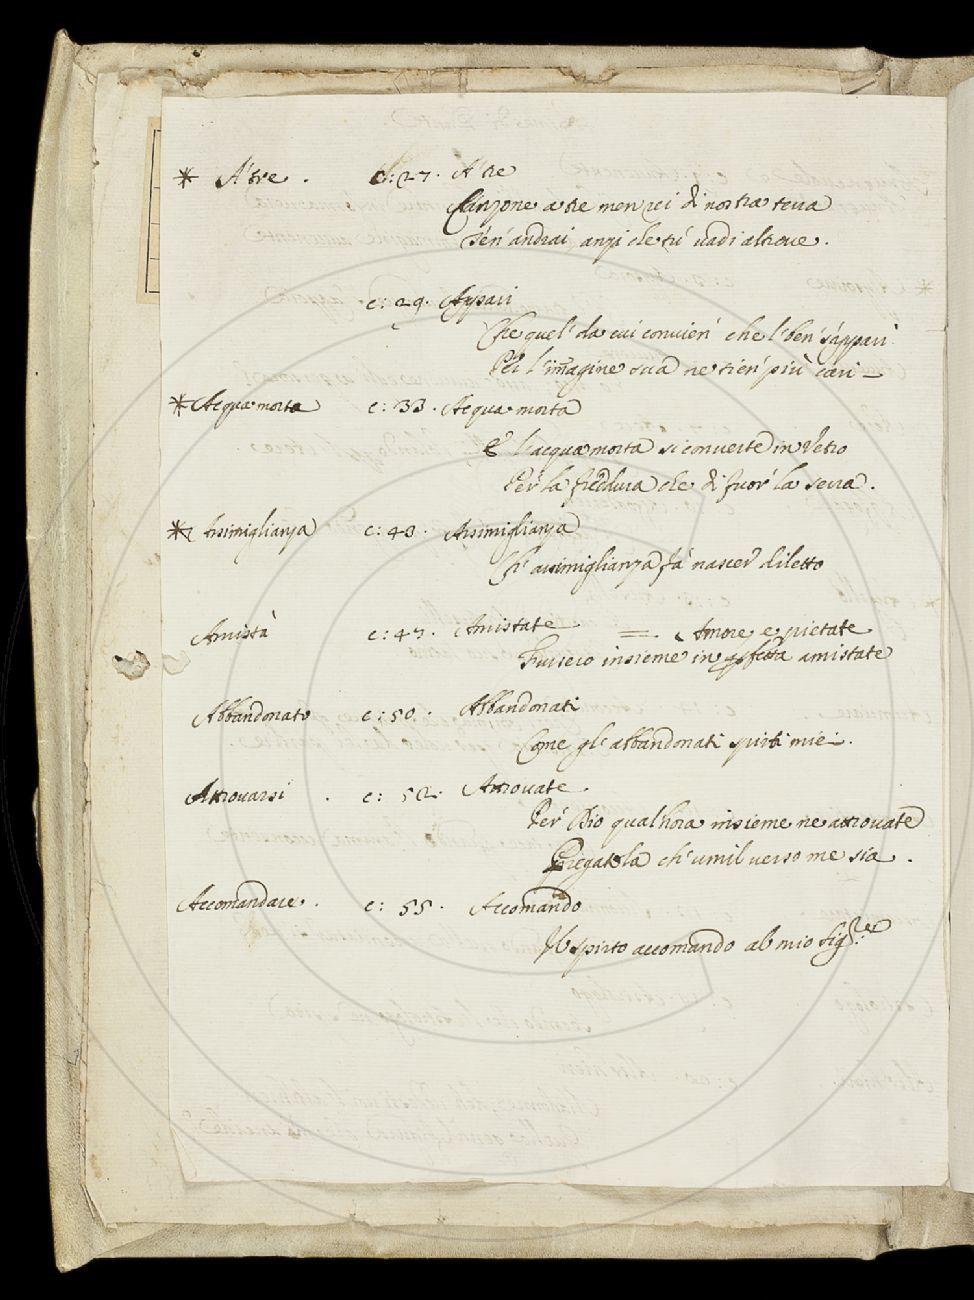 * A' tre . c: 27. A' tre
Canzone a tre men rei di nostra terra
Sen' andrai, anzi che tu' vadi altroue.
c: 29. Appari
Che quel' da cui convien' che l' ben' s'appari
Per l'imagine sua ne sien' più cari
* Acqua morta c: 33. Acqua morta
E' l'acqua morta si conuerte in Vetro
Per' la freddura che di fuor' la serra.
* Assimiglianza c: 43. Assimiglianza
Ch' assimiglianza fa' nascer diletto
Amistà c: 47. Amistate = . Amore e pietate
Fussero insieme in perfetta amistate
Abbandonato c: 50. Abbandonati
Come gl' abbandonati spirti miei.
Attrouarsi . c: 52. Attrouate
Per' Dio qual'hora insieme ne attrouate
Pregatela ch' umil verso me sia .
Accomandare . c: 55. Accomando
Lo spirto accomando al mio Sig.re